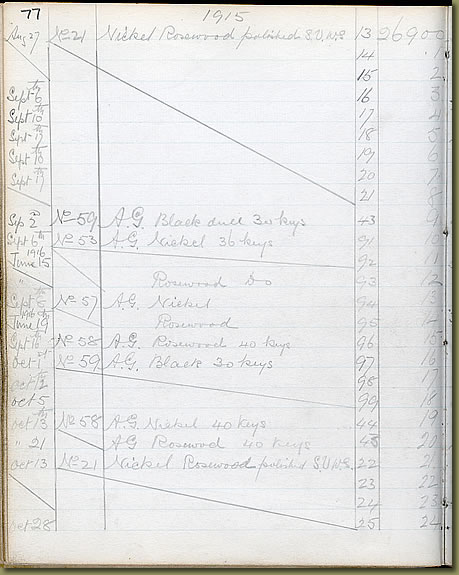 77 1915
Aug 27 No 21 Nickel Rosewood polished S.V. No. 13 26900
14 1
15 2
Sept 6th 16 3
Sept 10th 17 4
Sept 17th 18 5
Sept 18th 19 6
Sept 17th 20 7
21 8
Sep 2nd No 59 A.G. Black dull 30 keys 43 9
Sept 6th No 53 A.G. Nickel 36 keys 91 10
1916 June 15 92 11
" Rosewood Do 93 12
Sept 6th No 57 A.G. Nickel 94 13
1916 June 19th Rosewood 95
Sept No 58 A.G. Rosewood 40 keys 96 15
Oct 1st No 59 A.G. Black 30 keys 97 16
Oct 12th 98 17
Oct 5 99 18
Oct 13th No 58 A.G. Nickel 40 keys 44 19
" 21 A.G. Rosewood 40 keys 45 20
Oct 13 No 21 Nickel Rosewood polished S.V. No. 22 21
23 22
24 23
Oct 28 25 24